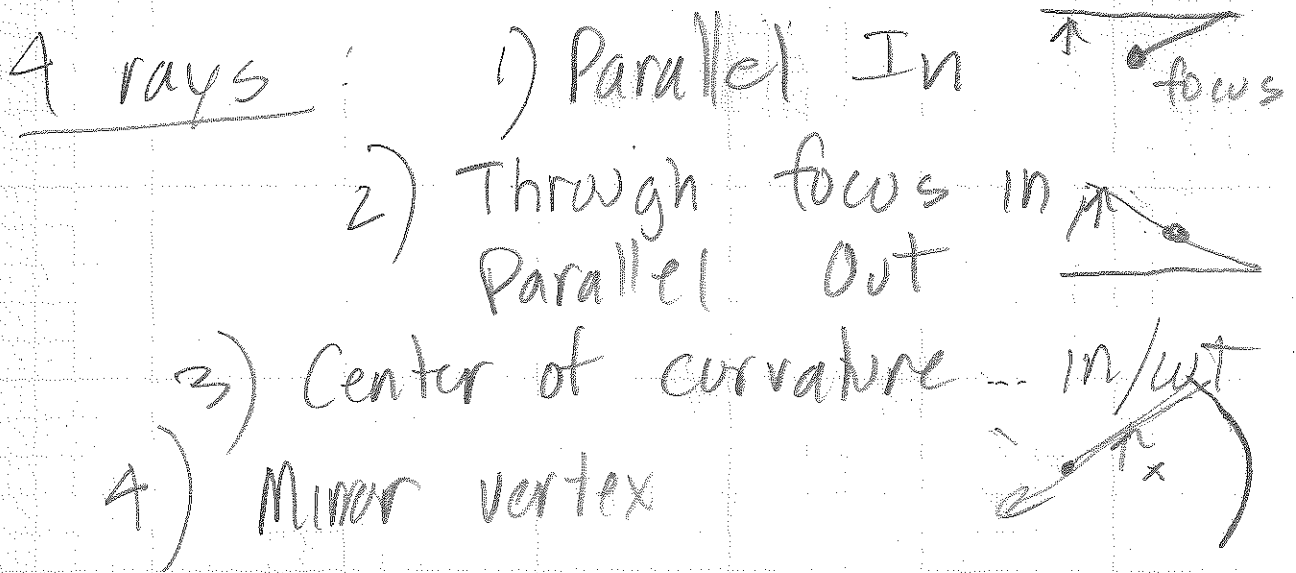 4 rays : 1) Parallel In
focus
2) Through focus in
Parallel Out
3) Center of curvature ... in/out
4) Mirror vertex
x